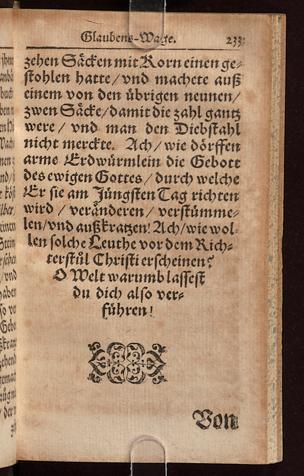 Glaubens-Wage. 233
zehen Säcken mit Korn einen ge-
stohlen hatte/ und machete auß
einem von den übrigen neunen/
zwen Säcke/ damit die zahl gantz
were/ und man den Diebstahl
nicht merckte. Ach/ wie dörffen
arme Erdwürmlein die Gebott
des ewigen Gottes/ durch welche
Er sie am Jüngsten Tag richten
wird/ veränderen/ verstümme-
len/ und außkratzen! Ach/ wie wol-
len solche Leuthe vor dem Rich-
terstůl Christi erscheinen?
O Welt warumb lassest
du dich also ver-
führen!
Von